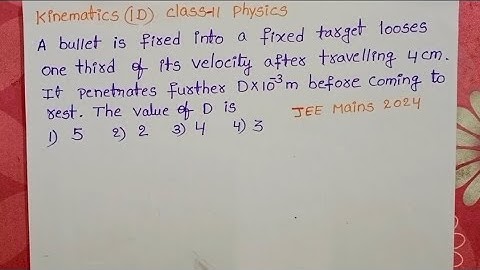 Kinematics (1D) class-11 Physics
A bullet is fired into a fixed target looses
one third of its velocity after travelling 4cm.
It penetrates further D×10⁻³m before coming to
rest. The value of D is
JEE Mains 2024
1) 5 2) 2 3) 4 4) 3